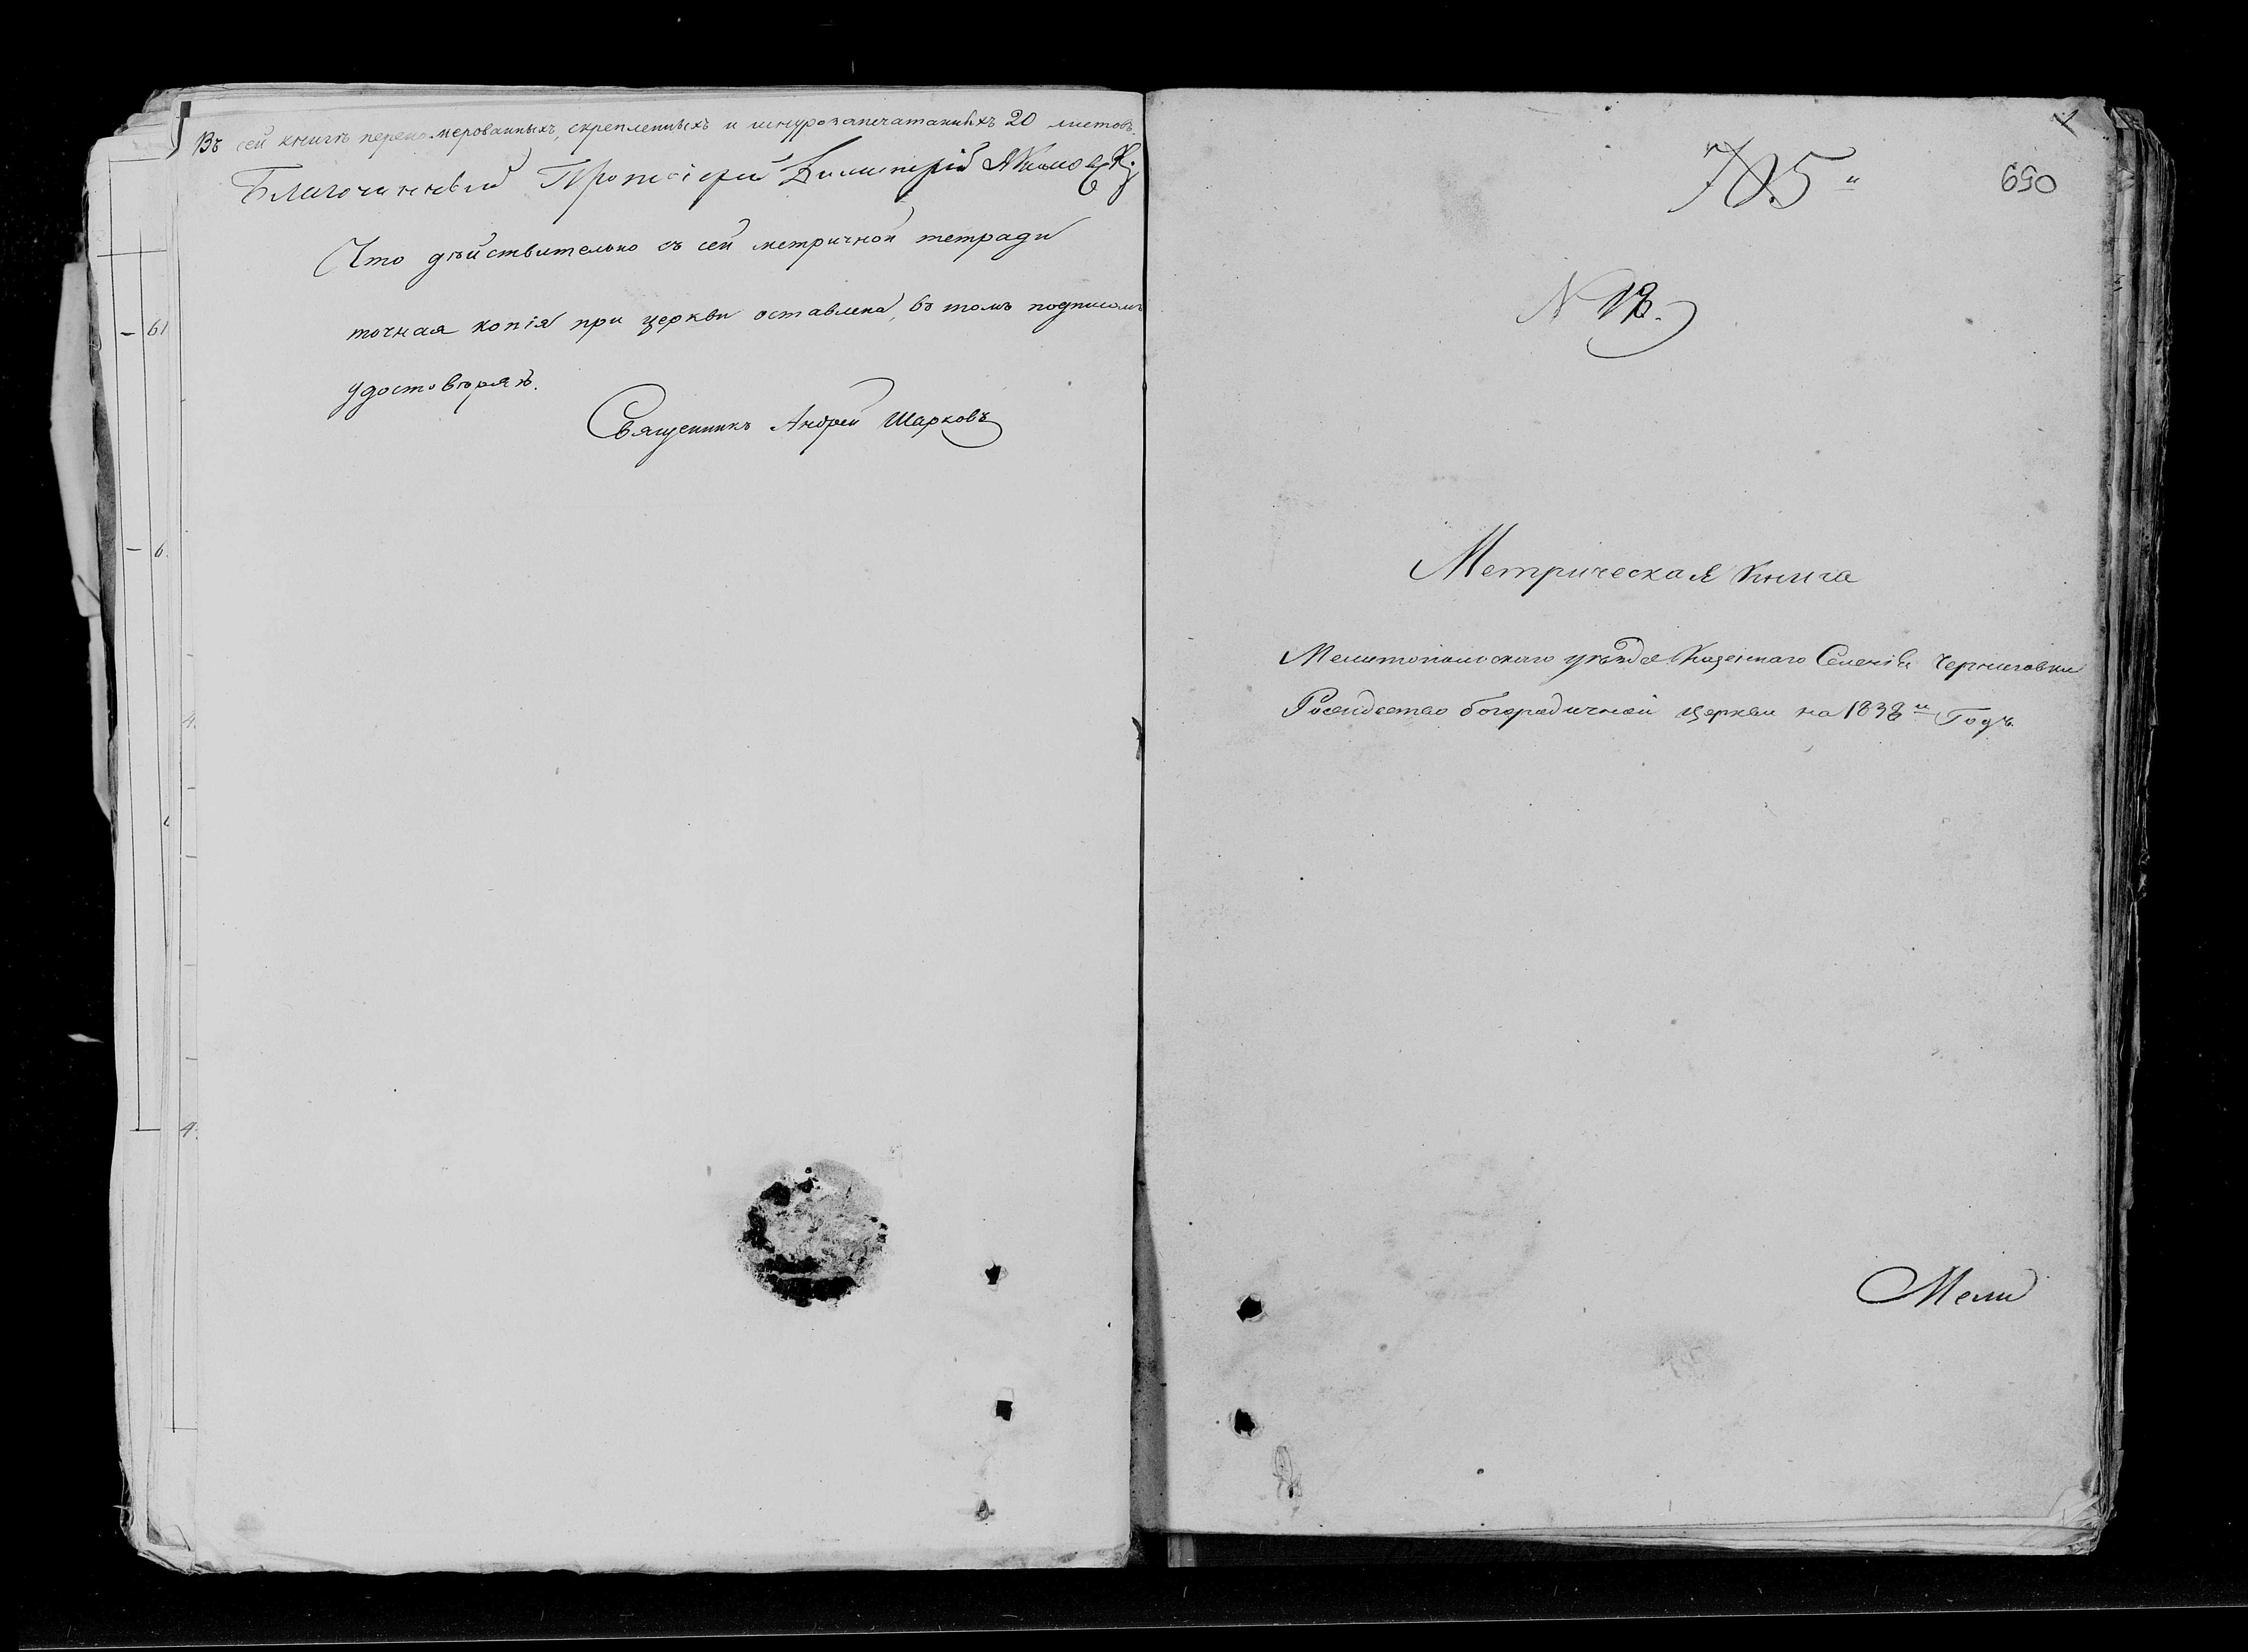 Въ сей книгѣ перенумерованныхъ, скрепленныхъ и шнурозапечатанныхъ 20 листовъ.
Благочинный Протоіерей Димитрій
Что дѣйствительно съ сей метричной тетради
точная копія при церкви оставлена, въ томъ подписомъ
удостовѣряю.
Священникъ Андрей Шарковъ
1
705
650
N 18.
Метрическая Книга
Мелитопольского уѣзда Казенного Селенія Черниговки
Рождество богородичной Церкви на 1838й Годъ.
Мели